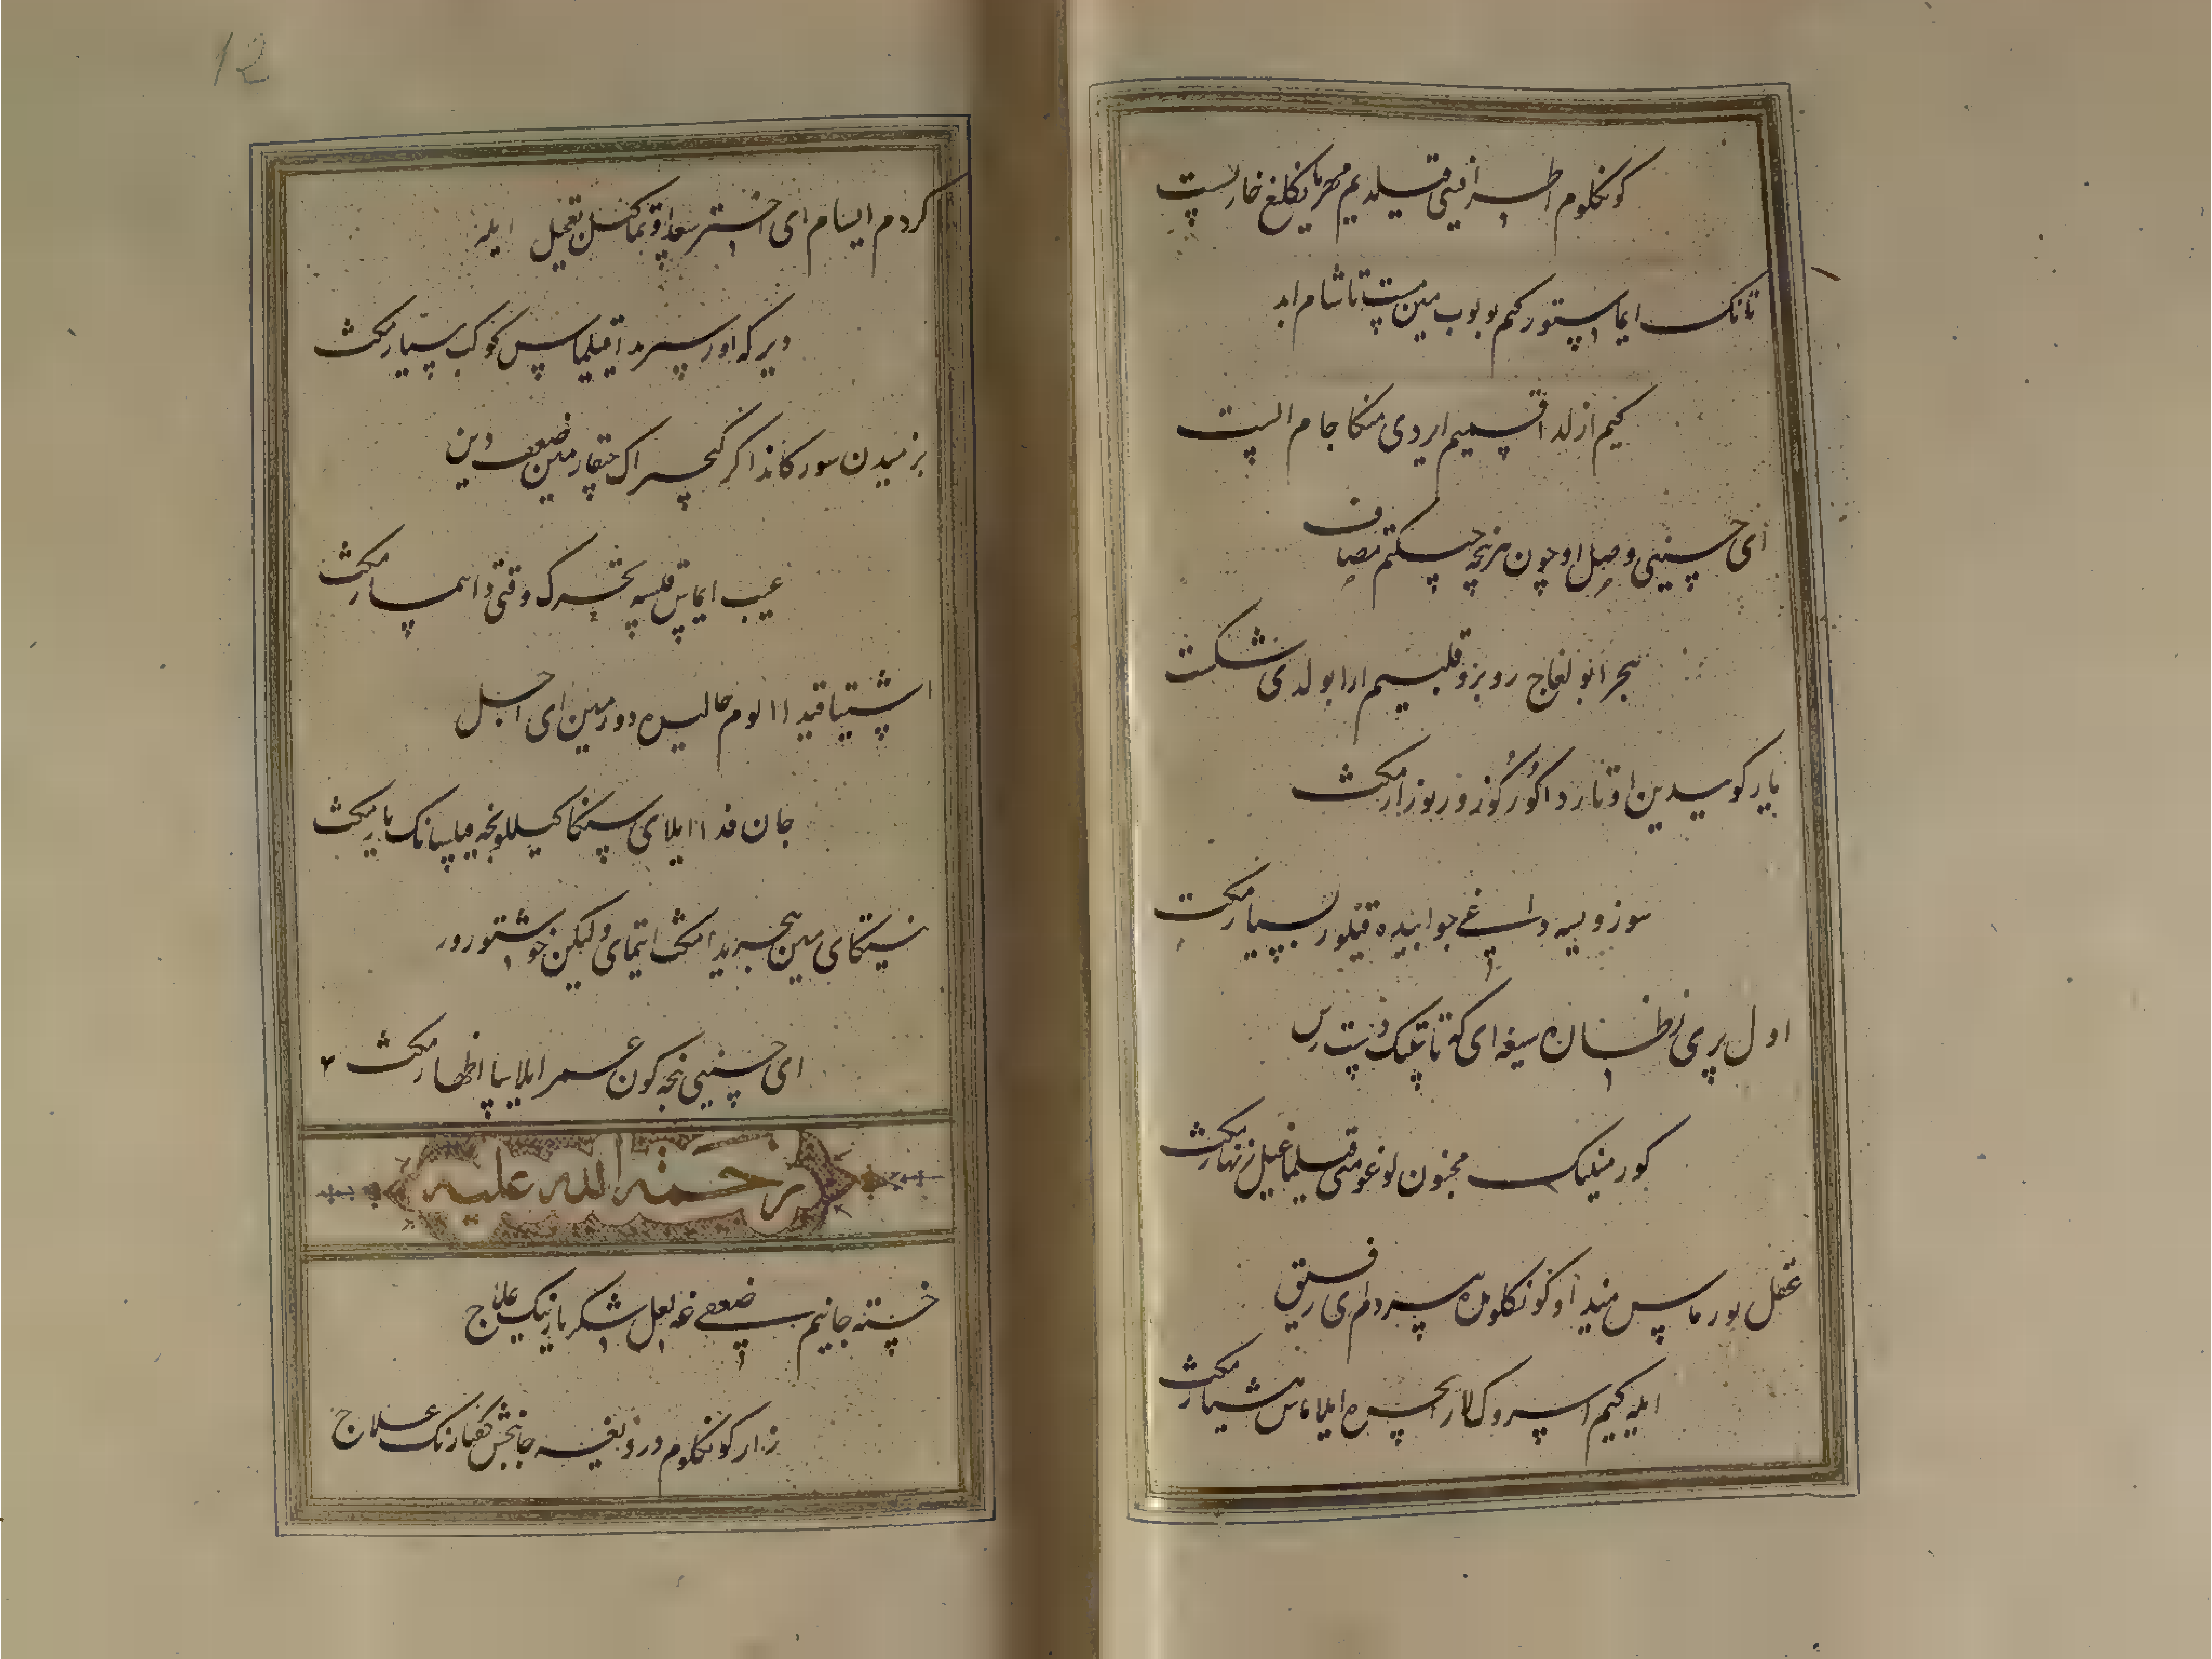 کونکلوم اطرافینی قیلدیم مهربانکلیغ خاربست
تانک ایماستور کیم بولوب مین مست تا شام ابد
کیم ازلدا قسمیم ایردی منکا جام الست
ای حسینی وصل اوچون هرنچه چکتیم مصاف
هجر انبولغاج روبرو قلبیم ارا بولدی شکست
یار کوییدین اوتاردا کور کوزوربوز ار مکث
سوز دیسه داغی جوابیده قیلور بسیار مکث
اول پری نظاره سیغه ای که تاپتینک دسترس
کور مینینک مجنون لوغومنی قیلماغیل زنهار مکث
عقل بورماس میندا و کونکلومده هردم ای رفیق
ایله کیم اسروک لار ایچره ایلاماس هشیار مکث
کردم ایسام ای اختر سعد اوتماکنسن تعجیل ایله
دیر که اوزسیریدا قیلماس کوکب سیار مکث
بزمیدن سورکاندا اکر کیچراک چقارمین ضعفدین
عیب ایماس قیلسه تحرک وقتی دا بیمار مکث
اشتیاقیدا اولوم حالیده دورمین ای اجل
جان فدا ایلای سنکا کیلکونچه قیلسانک یار مکث
نیتکای مین هجریدا مکث ایتمای ولیکن خوشتورور
ای حسینی نچه کون عمر ایلاسا اظهار مکث
۲
رحمة الله علیه
خسته جانیم ضعفیغه لعل شکر بارینک علاج
زار کونکلوم دردیغه جانبخش کفتارنک علاج
12